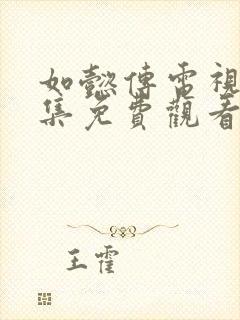 如懿傳電視
集免費觀看
王霍